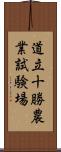 道立十勝農
業試験場